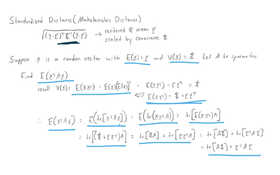 Standardized Distance (Mahalanobis Distance)
√((y-μ)ᵀ Σ⁻¹ (y-μ)) → centered @ mean μ
scaled by covariance Σ
Suppose y is a random vector with E(y)=μ and V(y)=Σ. Let A be symmetric
Find E(yᵀAy)
recall V(y) = E(yyᵀ) - E(y)E(y)ᵀ = E(yyᵀ) - μμᵀ = Σ
⟺ E(yyᵀ) = Σ + μμᵀ
∴ E(yᵀAy) = E(tr(yᵀAy)) = E(tr(yyᵀA)) = tr[E(yyᵀ)A]
= tr[(Σ+μμᵀ)A] = tr[ΣA] + tr[μμᵀA] = tr[AΣ] + tr[μᵀAμ]
= tr[AΣ] + μᵀAμ